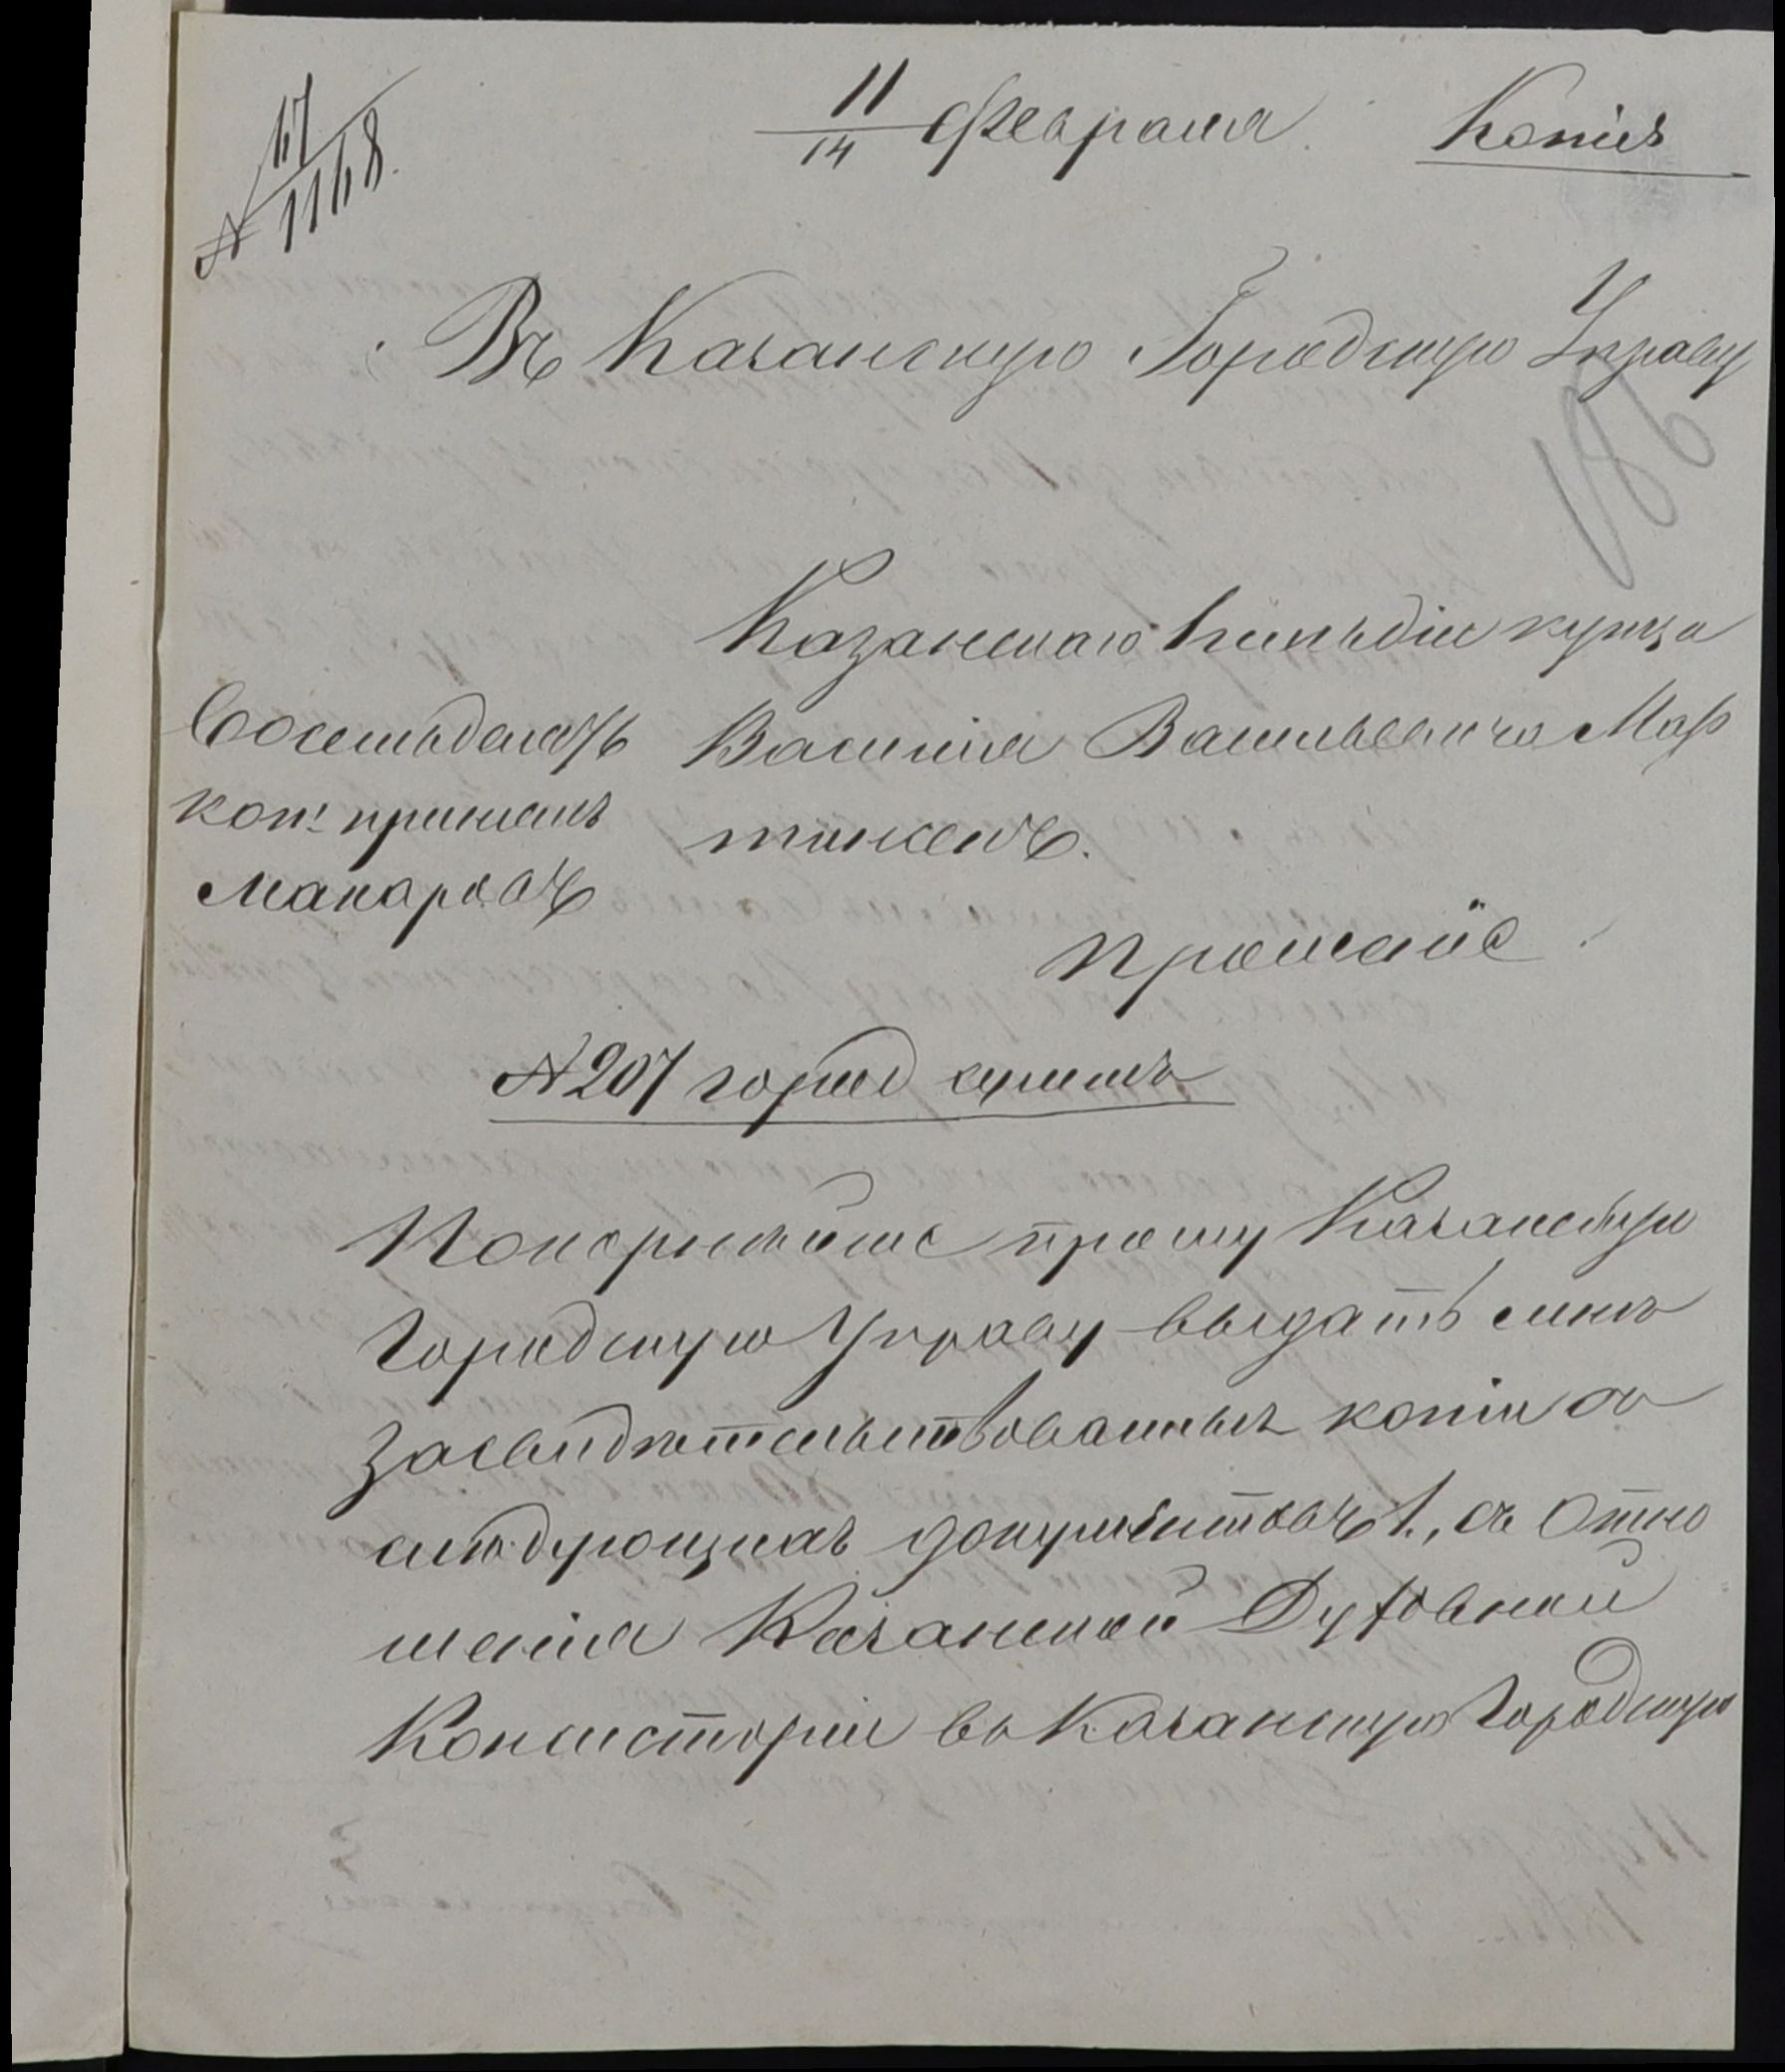 № 67/1168.
11/14 февраля. Копія
Въ Казанскую Городскую Управу
186
Казанскаго 1 гильдіи купца
Василія Васильевича Мар
тинсенъ.
кон. принялъ
Макаровъ
Прошеніе
№ 207 гор.
Покорнѣйше прошу Казанскую
Городскую Управу выдать мнѣ
засвидѣтельствованныя копіи съ
слѣдующихъ документовъ 1., съ Отно
шенія Казанской Духовной
Консисторіи въ Казанскую Городскую